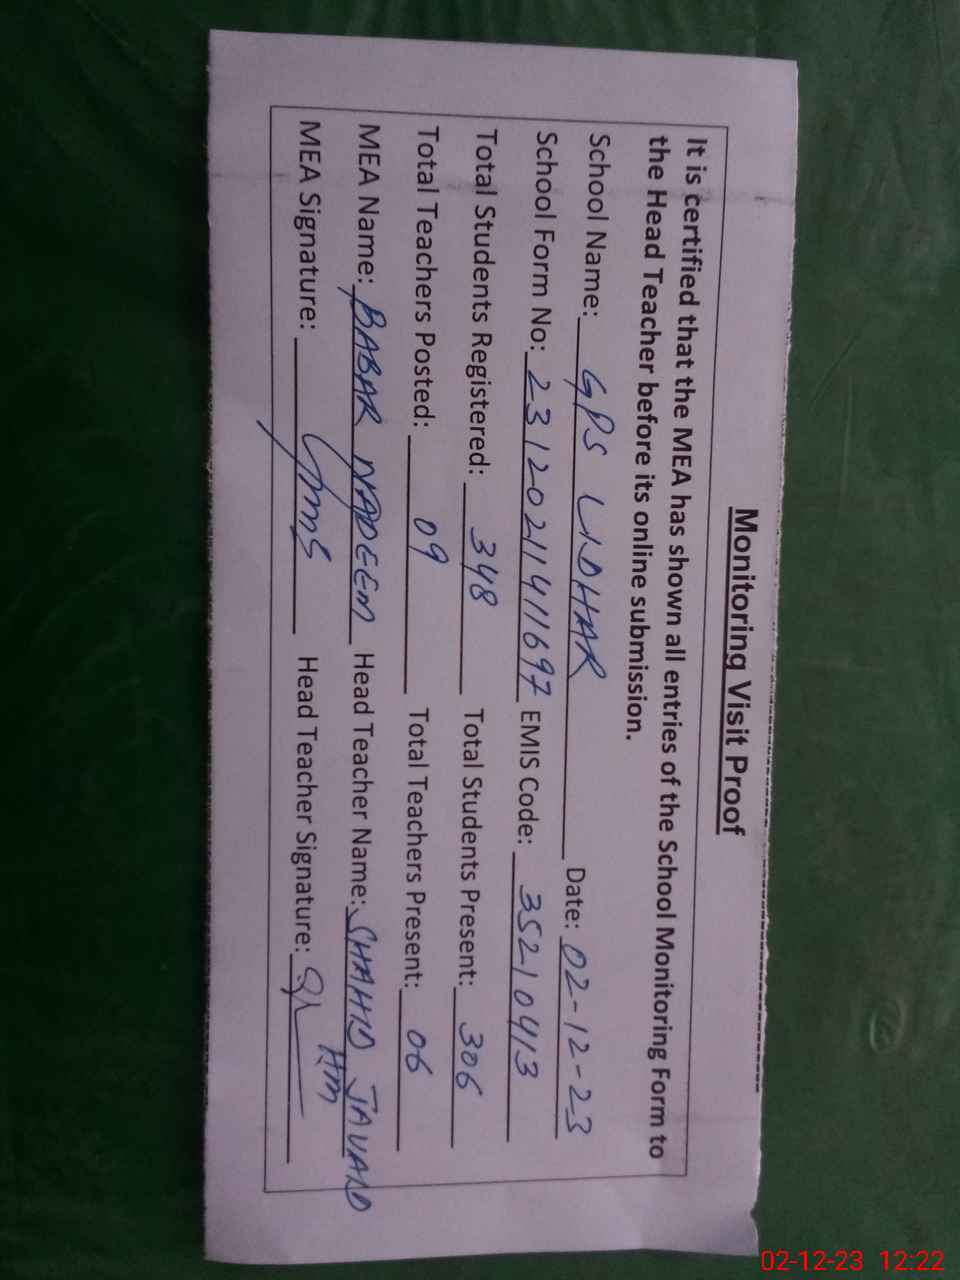 Monitoring Visit Proof
It is certified that the MEA has shown all entries of the School Monitoring Form to
the Head Teacher before its online submission.
School Name: GPS LIDHAR Date: 02-12-23
School Form No: 231202114111697 EMIS Code: 35210413
Total Students Registered: 348 Total Students Present: 306
Total Teachers Posted: 09 Total Teachers Present: 06
MEA Name: BABAR NADEEM Head Teacher Name: SHAHID JAVAID
MEA Signature: Head Teacher Signature: HM
02-12-23 12:22